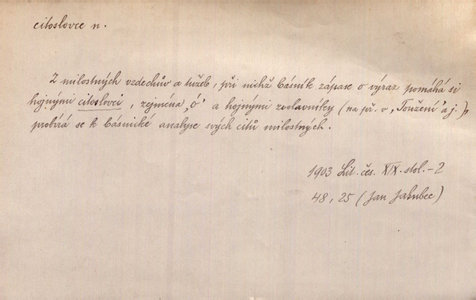 citoslovce n.
Z milostných vzdechův a tužeb, při nichž básník zápase o výraz pomáhá si
hojnými citoslovci, zejména „ó“ a hojnými zvolavníky (na př. v „Toužení“ a j.),
probírá se k básnické analyse svých citů milostných.
1903 Lit. čes. XIX. stol. - 2
48, 25 (Jan Jakubec)